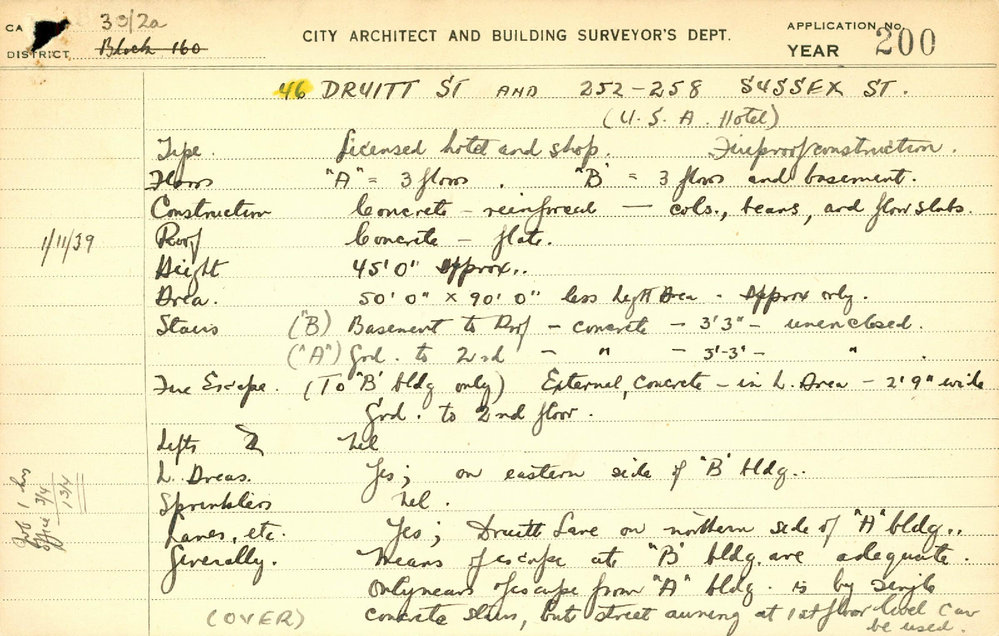 CA 33/2a
DISTRICT Block 160
CITY ARCHITECT AND BUILDING SURVEYOR'S DEPT.
APPLICATION No.
YEAR 200
46 DRUITT ST AND 252-258 SUSSEX ST.
(U.S.A. Hotel)
Type. Licensed hotel and shop. Fireproof construction.
Floors "A" = 3 floors. "B" = 3 floors and basement.
Construction Concrete - reinforced - cols., beams, and floor slabs.
1/11/39 Roof Concrete - flat.
Height 45'0" approx..
Area. 50'0" x 90'0" less light Area - Approx only.
Stairs ("B") Basement to Roof - concrete - 3'3" - unenclosed.
("A") Grd. to 2nd - " - 3'-3" - " .
Fire Escape. (To "B" bldg only) External, concrete - in L. Area - 2'9" wide
Grd. to 2nd floor.
Lifts Nil
L. Areas. Yes; on eastern side of "B" bldg..
Sprinklers Nil.
Lanes, etc. Yes; Druitt Lane on northern side of "A" bldg..
Generally. Means of escape at "B" bldg. are adequate.
Only means of escape from "A" bldg. is by single
(OVER) concrete stairs, but street awning at 1st floor level can
be used.
Job 1 hrs
Office 3/4
1 3/4